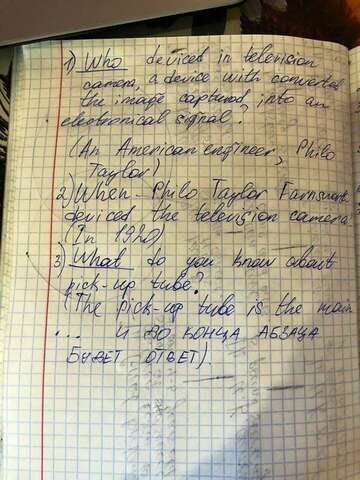 1) Who deviced in television
camera, a device with converted
the image captured into an
electronical signal?
(An American engineer, Philo
Taylor)
2) When Philo Taylor Farnswort
deviced the television camera
(In 1920)
3) What do you know about
pick-up tube?
(The pick-up tube is the main
... и до конца абзаца
будет ответ).